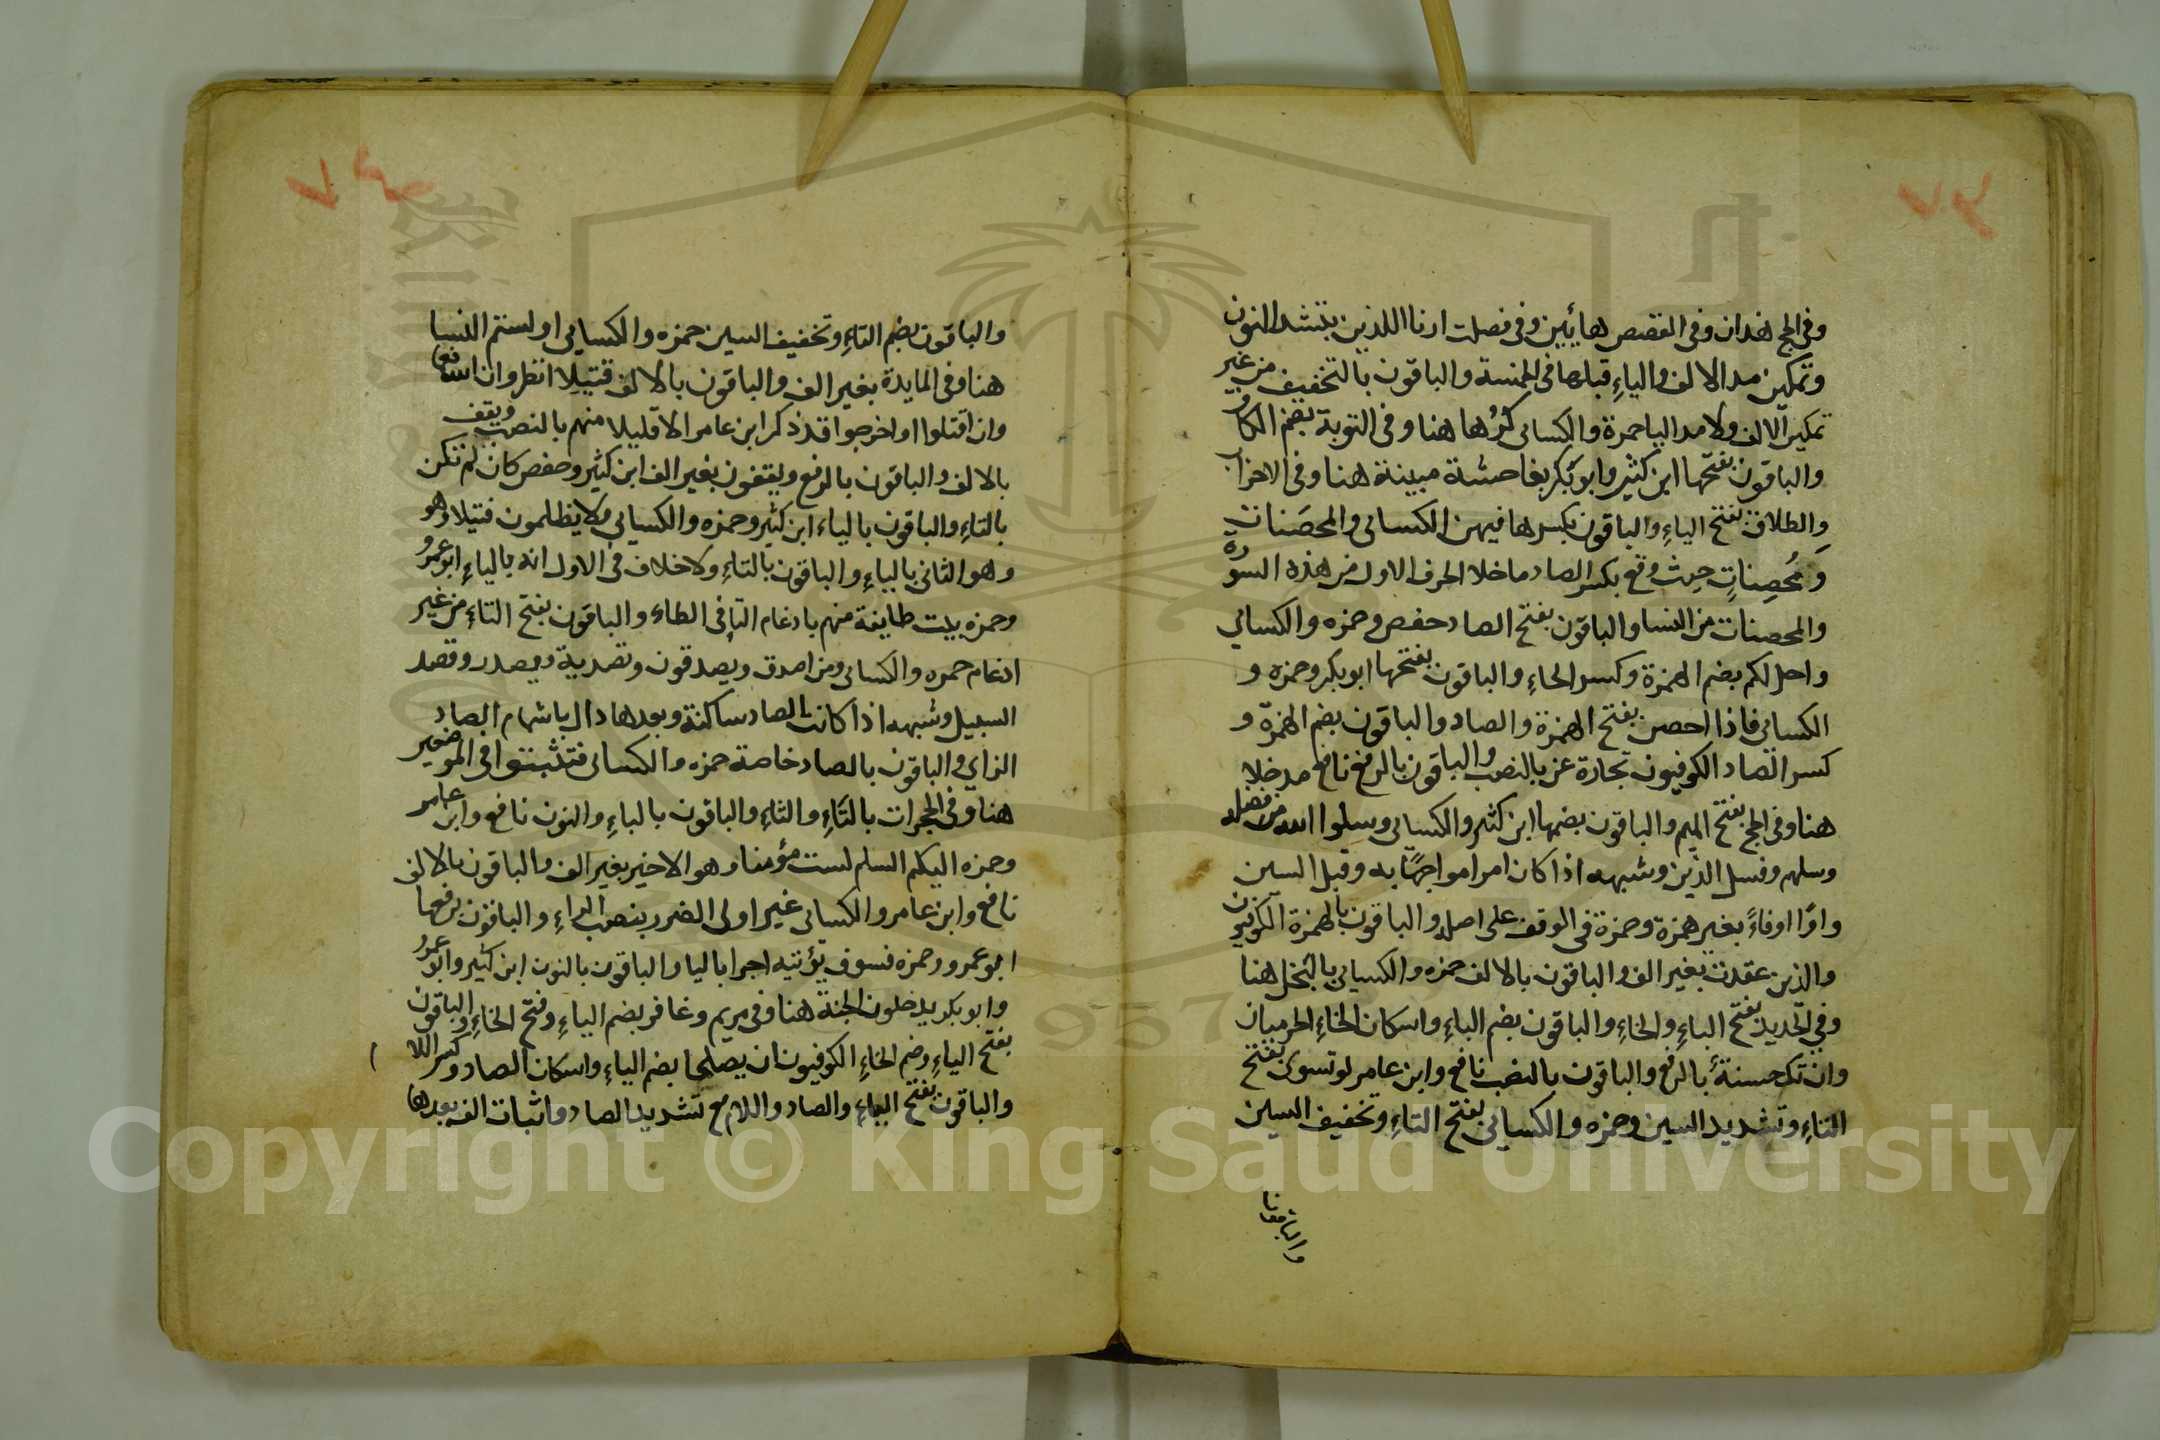 وفي الحج هذان وفي القصص هاتين وفي فصلت ارنا اللذين بتشديد النون
وتمكين مد الالف والياءِ قبلها في الخمسة والباقون بالتخفيف من غير
تمكين الالف ولا مد اليا حمزة والكسائى كرُها هنا وفي التوبة بضم الكاف
والباقون بفتحها ابن كثير وابو بكر بفاحشة مبينة هنا وفي الاحزاب
والطلاق بفتح الياءِ والباقون بكسرها فيهن الكسائى والمحصَنات
وَمُحصِناتٍ حيث وقع بكسر الصاد ما خلا الحرف الاول من هذه السورة
والمحصنات من النسا والباقون بفتح الصاد حفص وحمزه والكسائي
واحل لكم بضم الهمزة وكسر الحاءِ والباقون بفتحها ابو بكر وحمزه و
الكسائى فاذا احصن بفتح الهمزة والصاد والباقون بضم الهمزة و
كسر الصاد الكوفيون تجارة عن بالنصب والباقون بالرفع نافع مدخلا
هنا وفي الحج بفتح الميم والباقون بضمها ابن كثير والكسائى وسلوا الله من فضله
وسلهم وفسل الذين وشبهه اذا كان امرا مواجهًا به وقبل السين
واوًا اوفاءً بغير همزة وحمزة في الوقف على اصله والباقون بالهمزة الكوفيون
والذين عقدت بغير الف والباقون بالالف حمزه والكسايى بالبخل هنا
وفي الحديد بفتح الباءِ والخاءِ والباقون بضم الباءِ واسكان الخاءِ الحرميان
وان تك حسنةٌ بالرفع والباقون بالنصب نافع وابن عامر لو تسوى بفتح
التاءِ وتشديد السين وحمزه والكسايى بفتح التاءِ وتخفيف السين
والباقون
والباقون بضم التاءِ وتخفيف السين حمزه والكسايى او لمستم النسا
هنا وفي المايدة بغير الف والباقون بالالف فتيلِا انظر وان اقتلوا
وان اقتلوا او اخرجوا قد ذكر ابن عامر الا قليلا منهم بالنصب ويقف
بالالف والباقون بالرفع ويقفون بغير الف ابن كثير وحفص كان لم تكن
بالتاءِ والباقون بالياء ابن كثير وحمزه والكسايى ولا يظلمون فتيلا وهو
وهو الثانى بالياءِ والباقون بالتاءِ ولا خلاف في الاول انه بالياءِ ابو عمرو
وحمزه بيت طايفة منهم بادغام التا في الطاء والباقون بفتح التاءِ من غير
ادغام حمزه والكسائى ومن اصدق ويصدفون وتصدية ويصدر وقصد
السبيل وشبهه اذا كانت الصاد ساكنة وبعدها دال باشمام الصاد
الزاي والباقون بالصاد خاصة حمزه والكسائى فتثبتوا في الموضعين
هنا وفي الحجرات بالتاءِ والثاءِ والباقون بالباءِ والنون نافع وابن عامر
وحمزه اليكم السلم لست مؤمنا وهو الاخير بغير الف والباقون بالالف
نافع وابن عامر والكسائى غير اولى الضرر بنصب الراءِ والباقون برفعها
ابو عمرو وحمزه فسوف يؤتيه اجرا باليا والباقون بالنون ابن كثير وابو عمرو
وابو بكر يدخلون الجنة هنا وفي مريم وغافر بضم الياءِ وفتح الخاءِ والباقون
بفتح الياءِ وضم الخاءِ الكوفيون ان يصلحا بضم الياءِ واسكان الصاد وكسر اللا
والباقون بفتح الياءِ والصاد واللام مع تشديد الصاد واثبات الف بعدها
Copyright © King Saud University
1957